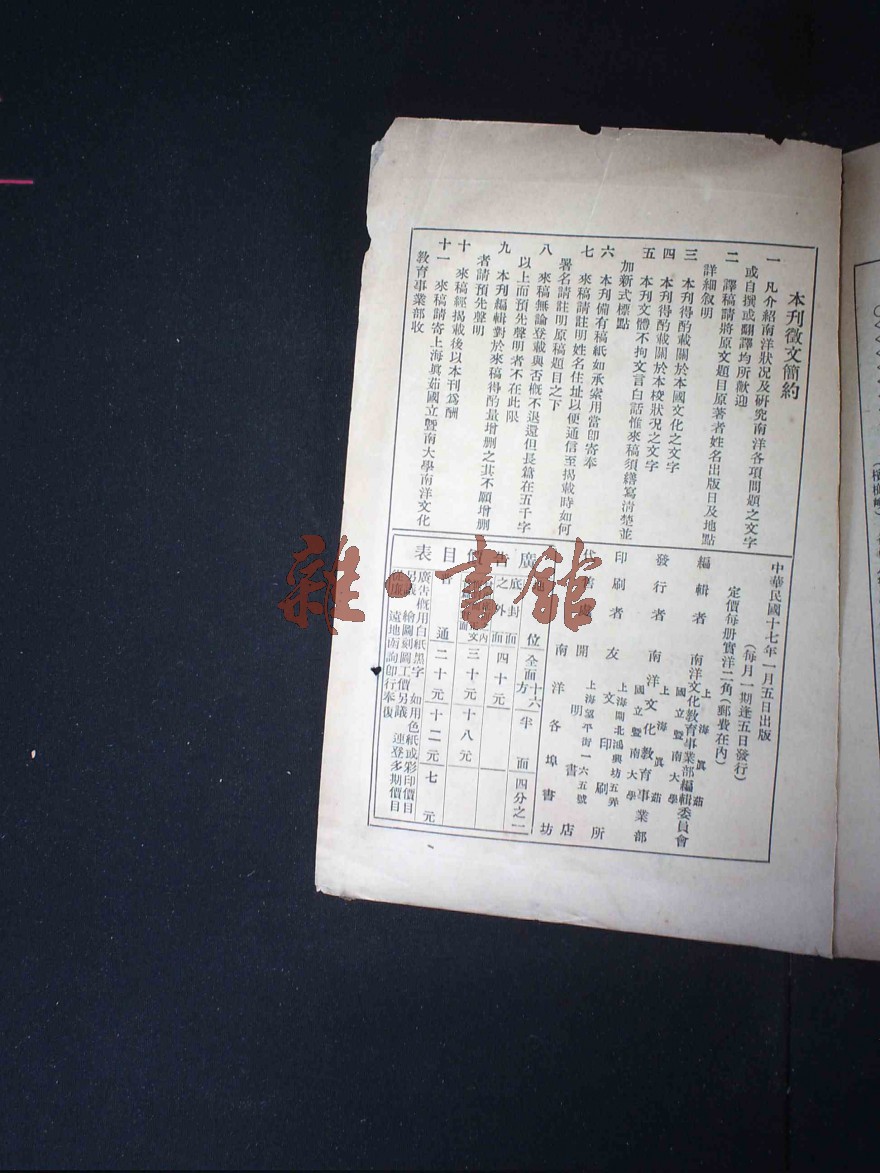 本刊徵文簡約
一　凡介紹南洋狀況及研究南洋各項問題之文字
或自撰或翻譯均所歡迎
二　譯稿請將原文題目原著者姓名出版日及地點
詳細叙明
三　本刊得酌載關於本國文化之文字
四　本刊得酌載關於本校狀況之文字
五　本刊文體不拘文言白話惟來稿須繕寫清楚並
加新式標點
六　本刊備有稿紙如承索用當卽寄奉
七　來稿請註明姓名住址以便通信至揭載時如何
署名請註明原稿題目之下
八　來稿無論登載與否槪不退還但長篇在五千字
以上而預先聲明者不在此限
九　本刊編輯對於來稿得酌量增删之其不願增删
者請預先聲明
十　來稿經揭載後以本刊爲酬
十一　來稿請寄上海眞茹國立曁南大學南洋文化
敎育事業部收
中華民國十七年一月五日出版
（每月一期逢五日發行）
定價每册實洋二角（郵費在內）
編輯者
上海眞茹
國立曁南大學
南洋文化敎育事業部編輯委員會
發行者
上海眞茹
國立曁南大學
南洋文化敎育事業部
印刷者
上海閘北鴻興坊五弄
友文印刷所
上海望平街一六五號
開明書店
南洋各埠書坊
廣告價目表
位
全面
十六方
半面
四分之一
底封面
之外面
四十元
三十元
十八元
通
二十元
十二元
七元
廣告概用白紙黑字　如用色紙或彩印價目
另議　繪圖刻圖工價另議　連登多期價目
從廉　遠地函詢卽行奉復
雜·書館